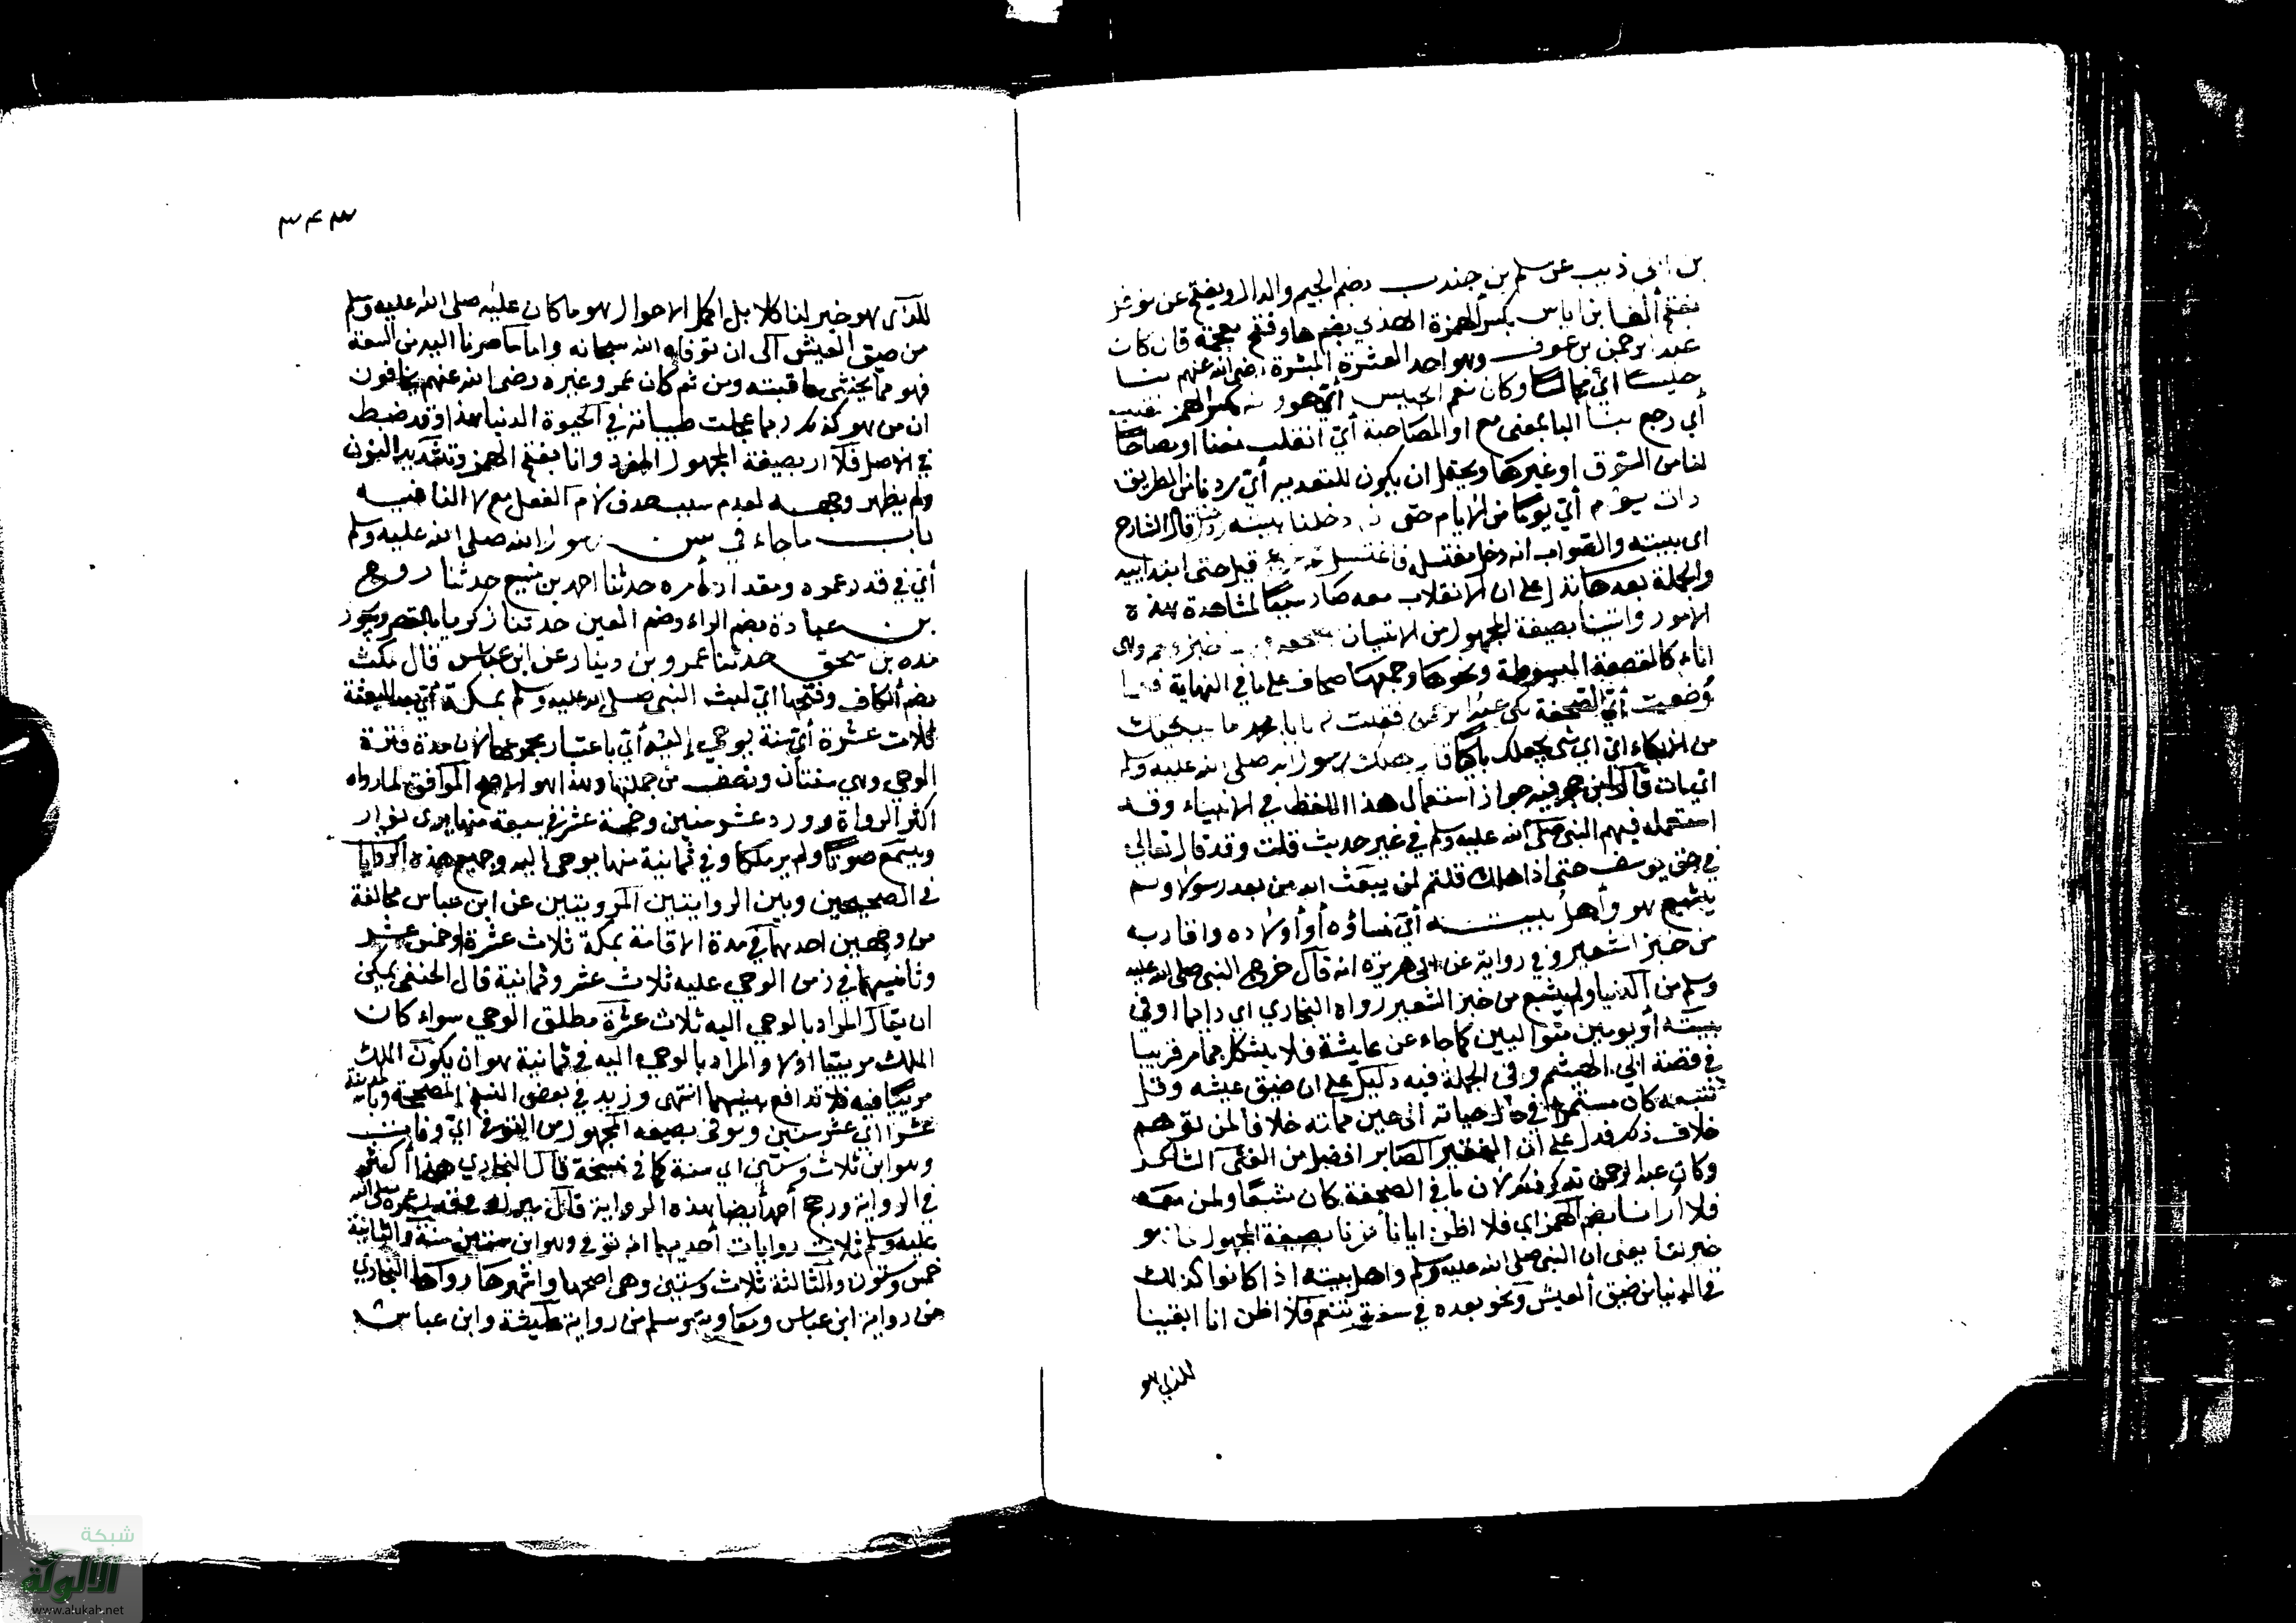 بن ابي ذيب عن مسلم بن جندب بضم الجيم والدال ويفتح عن نوفل
بفتح الفا بن اياس بكسر الهمزة الهذلي بضم ها وفتح معجمة قال كان
عبد الرحمن بن عوف وهو احد العشرة المبشرة رضي الله عنهم لنا
جليسا اي مجالسا وكان نعم الجليس اي هو وانه بكسر الهمز انقلب
أي رجع بنا البا بمعنى مع او المصاحبة أي انقلب معنا او مصاحبا
لنا من السوق او غيرها ويحتمل ان يكون للتعدية أي ردنا من الطريق
ذات يوم أي يوما من الايام حتى اذا دخلنا بيته قال الشارح
اى بيته والصواب انه دخل مغتسله فاغتسل ثم خرج قيل حتى ابتدائية
والجملة بعدها تدل على ان الانقلاب معه صار سببا لمشاهدة هذه
الامور واتينا بصيغة المجهول من الاتيان بصحفة فيها خبز ولحم وهى
اناء كالقصعة المبسوطة ونحوها وجمعها صحاف على ما في النهاية فلما
وضعت أي الصحفة بكى عبد الرحمن فقلت له يا با محمد ما يبكيك
من البكاء اي اي شي يجعلك باكيا قال هلك رسول الله صلى الله عليه وسلم
اي مات قال ابن حجر فيه جواز استعمال هذا اللفظ في الانبياء وقد
استعمله فيهم النبي صلى الله عليه وسلم في غير حديث قلت وقد قال تعالى
في حق يوسف حتى اذا هلك قلتم لن يبعث الله من بعده رسولا ولم
يشبع هو وأهل بيته أي نساؤه أو أولاده واقاربه
من خبز الشعير وفي رواية عن ابي هريرة انه قال خرج النبي صلى الله عليه
وسلم من الدنيا ولم يشبع من خبز الشعير رواه البخاري اي دايما او في
بيته أو يومين متواليين كما جاء عن عايشة فلا يشكل بما مر قريبا
في قصة ابي الهيثم وفي الجملة فيه دليل على ان ضيق عيشه وقلة
شبعه كان مستمرا في حال حياته الى حين مماته خلافا لمن توهم
خلاف ذلك فدل على ان الفقير الصابر افضل من الغني الشاكر
وكان عبد الرحمن تذكر فتفكر لان ما في الصحفة كان مشبعا ولمن معه
فلا أرانا بضم الهمز اي فلا اظن ايانا أخرنا بصيغة المجهول لما هو
خير لنا يعنى ان النبي صلى الله عليه وسلم واهل بيته اذا كانوا كذلك
في الدنيا من ضيق العيش ونحو بعده في سعة وتنعم فلا اظن انا ابقينا
للذي هو
٣٤٣
للذى هو خير لنا كلا بل اكمل الاحوال هو ما كان عليه صلى الله عليه وسلم
من ضيق العيش الى ان توفاه الله سبحانه واما ما صرنا اليه من السعة
فهو مما يخشى عاقبته ومن ثم كان عمر وغيره رضى الله عنهم يخافون
ان من هو كذلك ربما عجلت طيباته في الحيوة الدنيا هذا وقد ضبط
في الاصل فلا ار بصيغة المجهول المفرد وانا بفتح الهمز وتشديد النون
ولم يظهر وجهه لعدم سبب حذف لام الفعل مع لا النافية
باب ما جاء في سن رسول الله صلى الله عليه وسلم
أي في قدر عمره ومقدار أمره حدثنا احمد بن منيع حدثنا روح
بن عبادة بضم الراء وضم العين حدثنا زكريا بالقصر ويجوز
مده بن اسحق حدثنا عمرو بن دينار عن ابن عباس قال مكث
بضم الكاف وفتحها اي لبث النبي صلى الله عليه وسلم بمكة أي بعد البعثة
ثلاث عشرة أي سنة يوحى إليه أي باعتبار مجموعها لان مدة فترة
الوحي وهي سنتان ونصف من جملتها وهذا هو الاصح الموافق لما رواه
اكثر الرواة وورد عشر سنين وخمسة عشر في سبعة منها يرى نورا
ويسمع صوتا ولم ير ملكا وفي ثمانية منها يوحى اليه وجميع هذه الروايا
فى الصحيحين وبين الروايتين المرويتين عن ابن عباس مخالفة
من وجهين احدهما في مدة الاقامة بمكة ثلاث عشرة او خمس عشر
وثانيهما في زمن الوحي عليه ثلاث عشر وثمانية قال الحنفي يمكن
ان يقال المراد بالوحي اليه ثلاث عشرة مطلق الوحي سواء كان
الملك مرييا اولا والمراد بالوحي اليه في ثمانية هو ان يكون الملك
مرييا فيه فلا تدافع بينهما انتهى وزيد في بعض النسخ المصححة وبالمدينة
عشرا اي عشر سنين وتوفي بصيغه المجهول من التوفي اي وفات
وهو ابن ثلاث وستين اي سنة كما في نسخة قال البخاري هذا أكثر
في الرواية ورجح أحمد أيضا هذه الرواية قال ميرك في قدر عمره صلى الله
عليه وسلم ثلاث روايات أحديها انه توفي وهو ابن ستين سنة والثانية
خمس وستون والثالثة ثلاث وستين وهي اصحها واشهرها رواها البخاري
من رواية ابن عباس ومعاوية ومسلم من رواية عايشة وابن عباس
شبكة
الألوكة
www.alukah.net